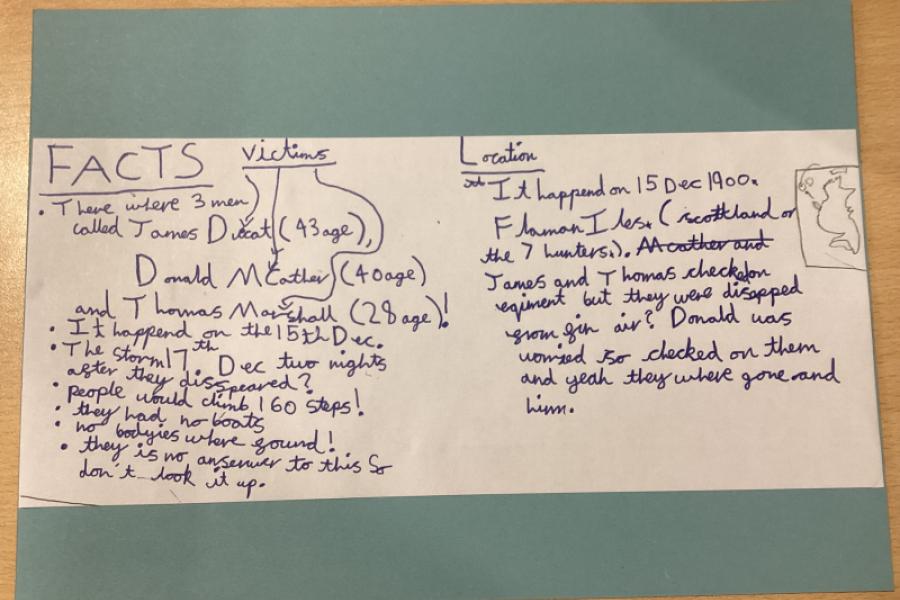 FACTS
victims
• There where 3 men
called James Ducat (43 age),
Donald MCather (40 age)
and Thomas Marshall (28 age)!
• It happend on the 15th Dec.
• The storm 17th. Dec two nights
after they disspeared?
• people would climb 160 steps!
• they had no boats
• no bodyies where found!
• they is no ansenwer to this So
don't look it up.
Location
It happend on 15 Dec 1900.
Flaman Iles. (scottland or
the 7 hunters). Mcather and
James and Thomas checked on
eqiment but they were disapped
from fin air? Donald was
worried so checked on them
and yeah they where gone and
him.